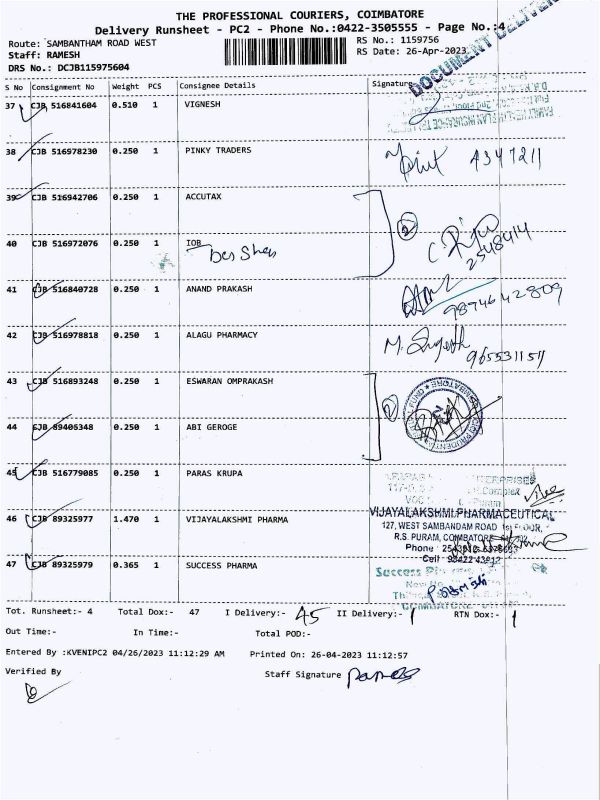 THE PROFESSIONAL COURIERS, COIMBATORE
Delivery Runsheet - PC2 - Phone No.:0422-3505555 - Page No.:4
DOCUMENT
Route: SAMBANTHAM ROAD WEST
RS No.: 1159756
Staff: RAMESH
RS Date: 26-Apr-2023
DRS No.: DCJB115975604
S No Consignment No Weight PCS Consignee Details Signature
37 CJB 516841604 0.510 1 VIGNESH
38 CJB 516978230 0.250 1 PINKY TRADERS
39 CJB 516942706 0.250 1 ACCUTAX
40 CJB 516972076 0.250 1 IOB
2
2548414
41 CJB 516840728 0.250 1 ANAND PRAKASH
9874642809
42 CJB 516978818 0.250 1 ALAGU PHARMACY
9655311511
43 CJB 516893248 0.250 1 ESWARAN OMPRAKASH
44 CJB 89406348 0.250 1 ABI GEROGE
45 CJB 516779085 0.250 1 PARAS KRUPA
46 CJB 89325977 1.470 1 VIJAYALAKSHMI PHARMA
VIJAYALAKSHMI PHARMACEUTICAL
127, WEST SAMBANDAM ROAD 1st FLOOR,
R.S. PURAM, COIMBATORE
Phone
Cell
47 CJB 89325979 0.365 1 SUCCESS PHARMA
Success
Tot. Runsheet:- 4 Total Dox:- 47 I Delivery:- 45 II Delivery:- 1 RTN Dox:- 1
Out Time:- In Time:- Total POD:-
Entered By :KVENIPC2 04/26/2023 11:12:29 AM Printed On: 26-04-2023 11:12:57
Verified By
Staff Signature